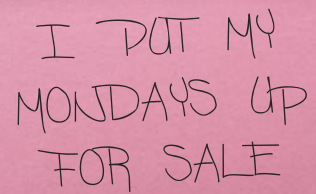 I PUT MY
MONDAYS UP
FOR SALE